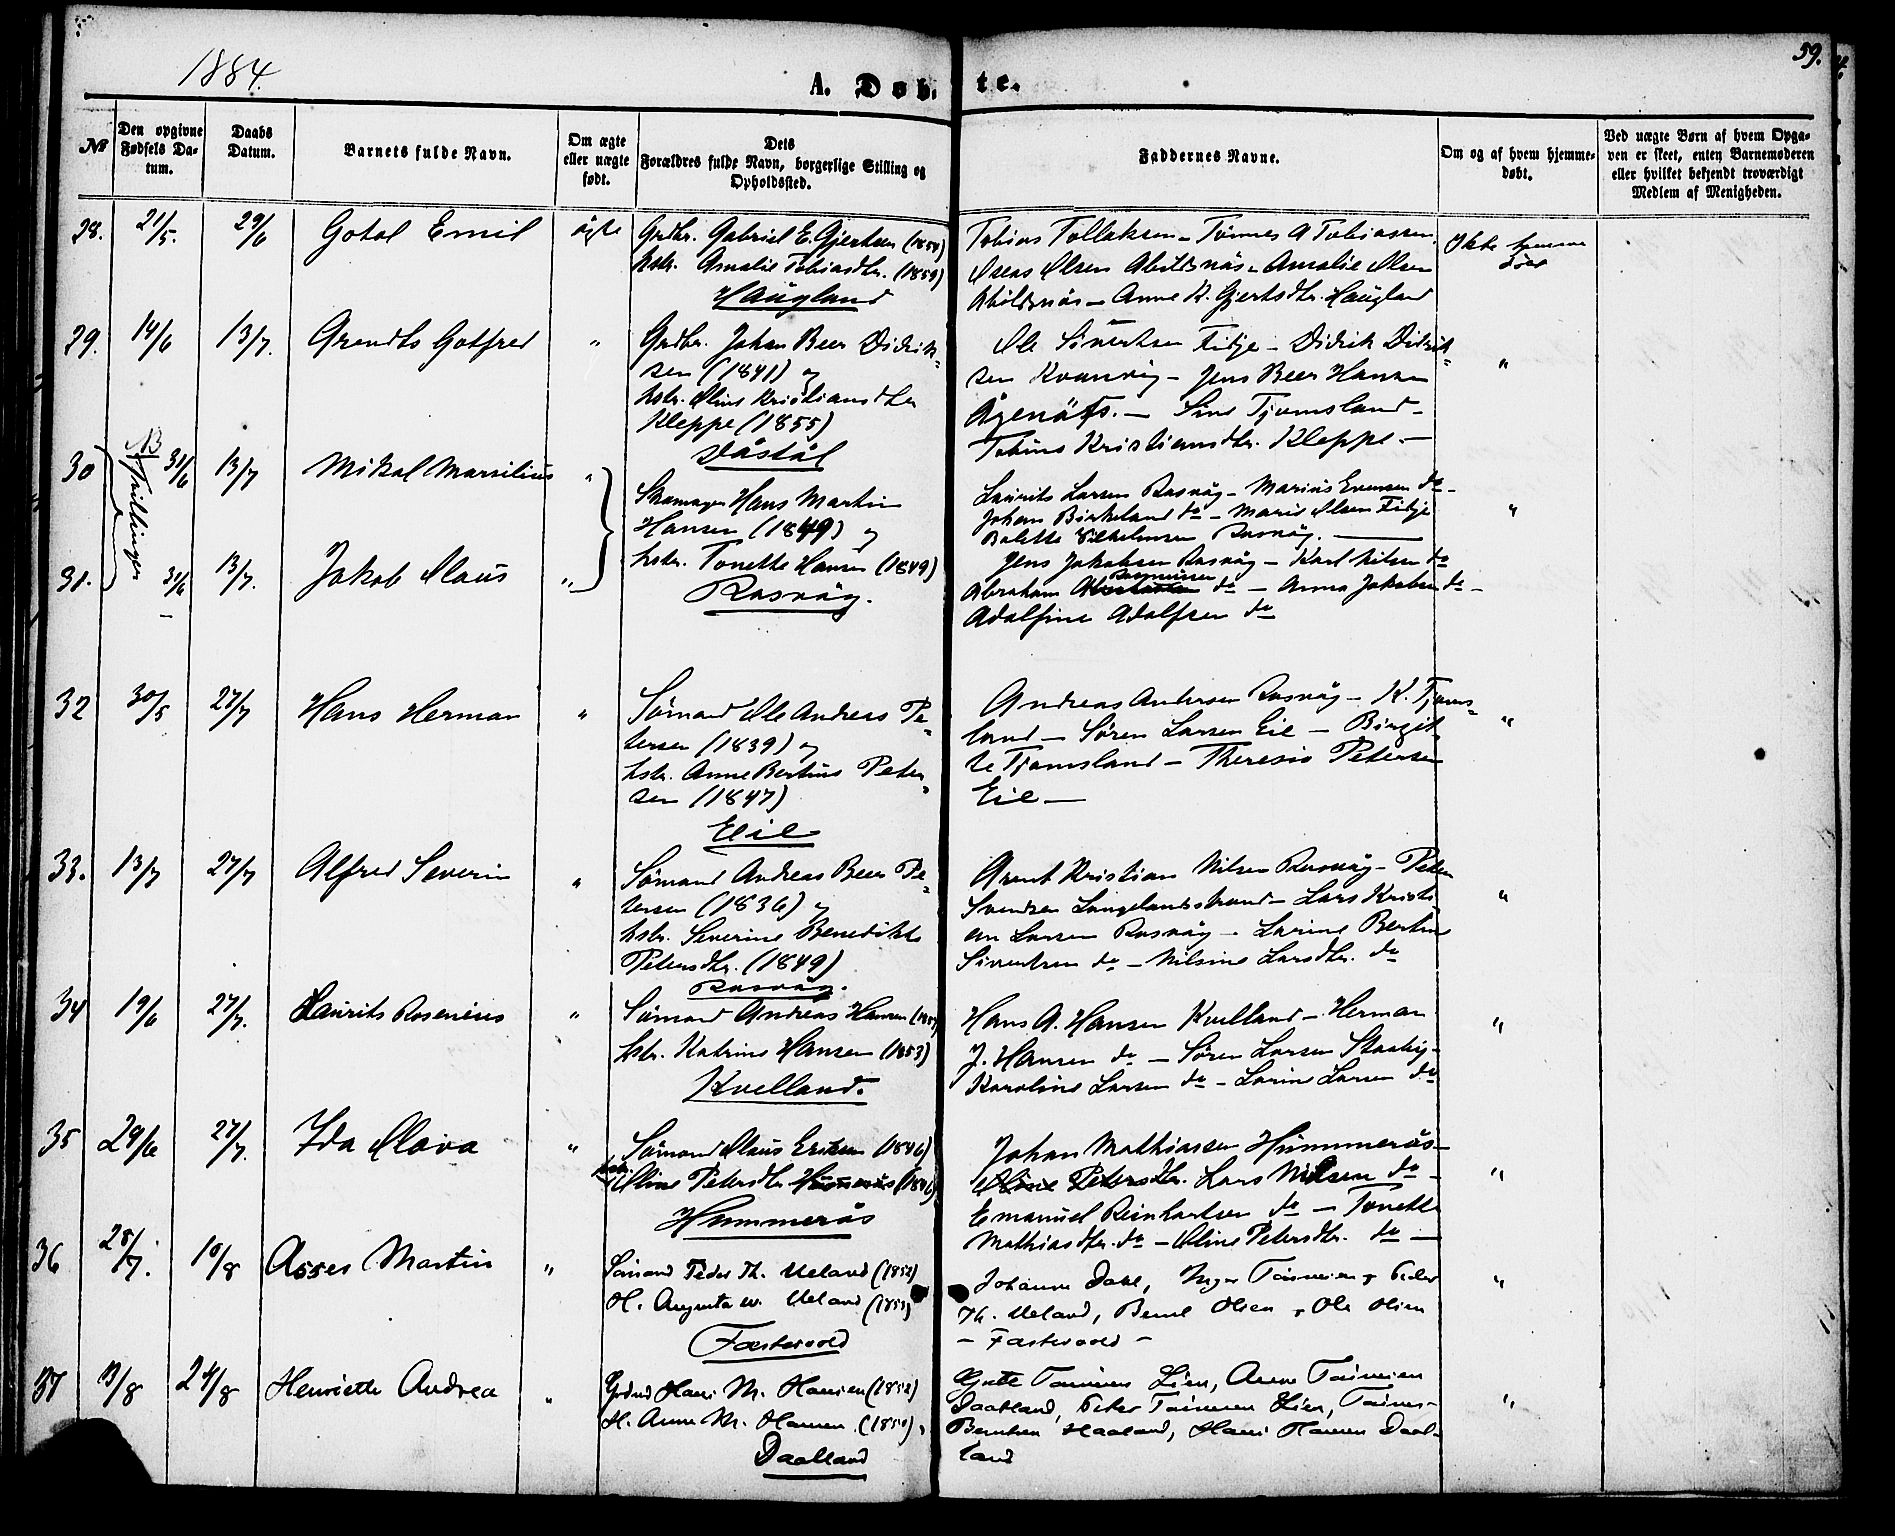 1884.
A. Døb-
te.
59.
№
Den opgivne Fødsels Datum.
Daabs Datum.
Barnets fulde Navn.
Om ægte eller uægte født.
Dets Forældres fulde Navn, borgerlige Stilling og Opholdssted.
Faddernes Navne.
Om og af hvem hjemmedøbt.
Ved uægte Børn af hvem Opgaven er skeet, enten Barnemoderen eller hvilket bekjendt troværdigt Medlem af Menigheden.
28. 21/5. 29/6 Gotal Emil ägte
Grdbr. Gabriel E. Gjertsen
hstr. Amalie Tobiasdtr. (1859)
Haugland
Tobias Tollaksen - Tönnes A Tobiassen
Oseas Olsen Abelsnäs - Amalie Olsen
Abelsnäs - Anne K. Gjertsdtr. Haugland
Ikke hjemme
döbt
29. 14/6 13/7. Arendts Gotfred "
Grdbr. Johan Beer Didrik-
sen (1841) og
hstr. Oline Kristiansdtr
Kleppe (1855)
Våstöl
Ole Sivertsen Fitje - Didrik Didrik-
sen Kvanvig - Jens Beer Hansen
Ågenäs. - Sine Tjomsland -
Tobine Kristiansdtr. Kleppe -
"
NB Trillinger
30 31/6 13/7 Mikal Marsilius "
31. 31/6 13/7. Jakob Olaus "
Skomager Hans Martin
Hansen (1849) og
hstr. Tonette Hansen (1849)
Rasvåg.
Laurits Larsen Rasvåg - Marius Evensen do -
Johan Birkeland do - Marie Olsen Fitje
Bolette Vilhelmsen Rasvåg.
Jens Jakobsen Rasvåg - Karl Nilsen do
Abraham Rasmussen do - Anna Jakobsen do -
Adolfine Adolfsen do
"
32 30/5 27/7 Hans Herman "
Sömand Ole Andreas Pe-
tersen (1839) og
hstr. Anne Bertine Peter-
sen (1847)
Eie
Andreas Andersen Rasvåg - K. Tjoms-
land - Sören Larsen Eie - Birgit-
te Tjomsland - Theresie Petersen
Eie -
"
33. 13/7 27/7 Alfred Severin "
Sömand Andreas Beer Pe-
tersen (1836) og
hstr. Severine Benedikte
Petersdtr. (1849)
Rasvåg.
Arent Kristian Nilsen Rasvåg - Peter
Svendsen Langelandsstrand - Lars Kristi
an Larsen Rasvåg - Larine Bertine
Sivertsen do - Nilsine Larsdtr. do
"
34 19/6 27/7. Laurits Rosenius "
Sömand Andreas Hansen
hstr. Katrine Hansen (1853)
Kvelland.
Hans A. Hansen Kvelland - Herman
J. Hansen do - Sören Larsen
Karoline Larsen do - Larine Larsen do
"
35 29/6 27/7. Ida Olava "
Sömand Olaus Eriksen (1846)
hstr. Oline Petersdtr Hummerås (1846)
Hummerås
Johan Mathiassen Hummerås -
Oline Petersdtr. Lars Nilsen do -
Emanuel Reinhartsen do - Tonette
Mathiasdtr. do - Oline Petersdtr. do -
"
36 28/7. 10/8 Asser Martin "
Sömand Peder Th. Ueland (1852)
H. Augusta
Ueland
Fastevold
Johanne Dahl, Inger Tönnesen, Peder
Th. Ueland, Olsen, Ole Olsen
- Fastevold -
"
37 13/8 24/8 Henriette Andrea "
Grdmd Hans M. Hansen (1852)
H. Anne M. Hansen
Daatland
Gute Tönnesen Lien, Anne Tönnesen
Daatland, Peter Tönnesen Lien, Tönnes
Berntsen Haaland, Hans Hansen Daat-
land
"